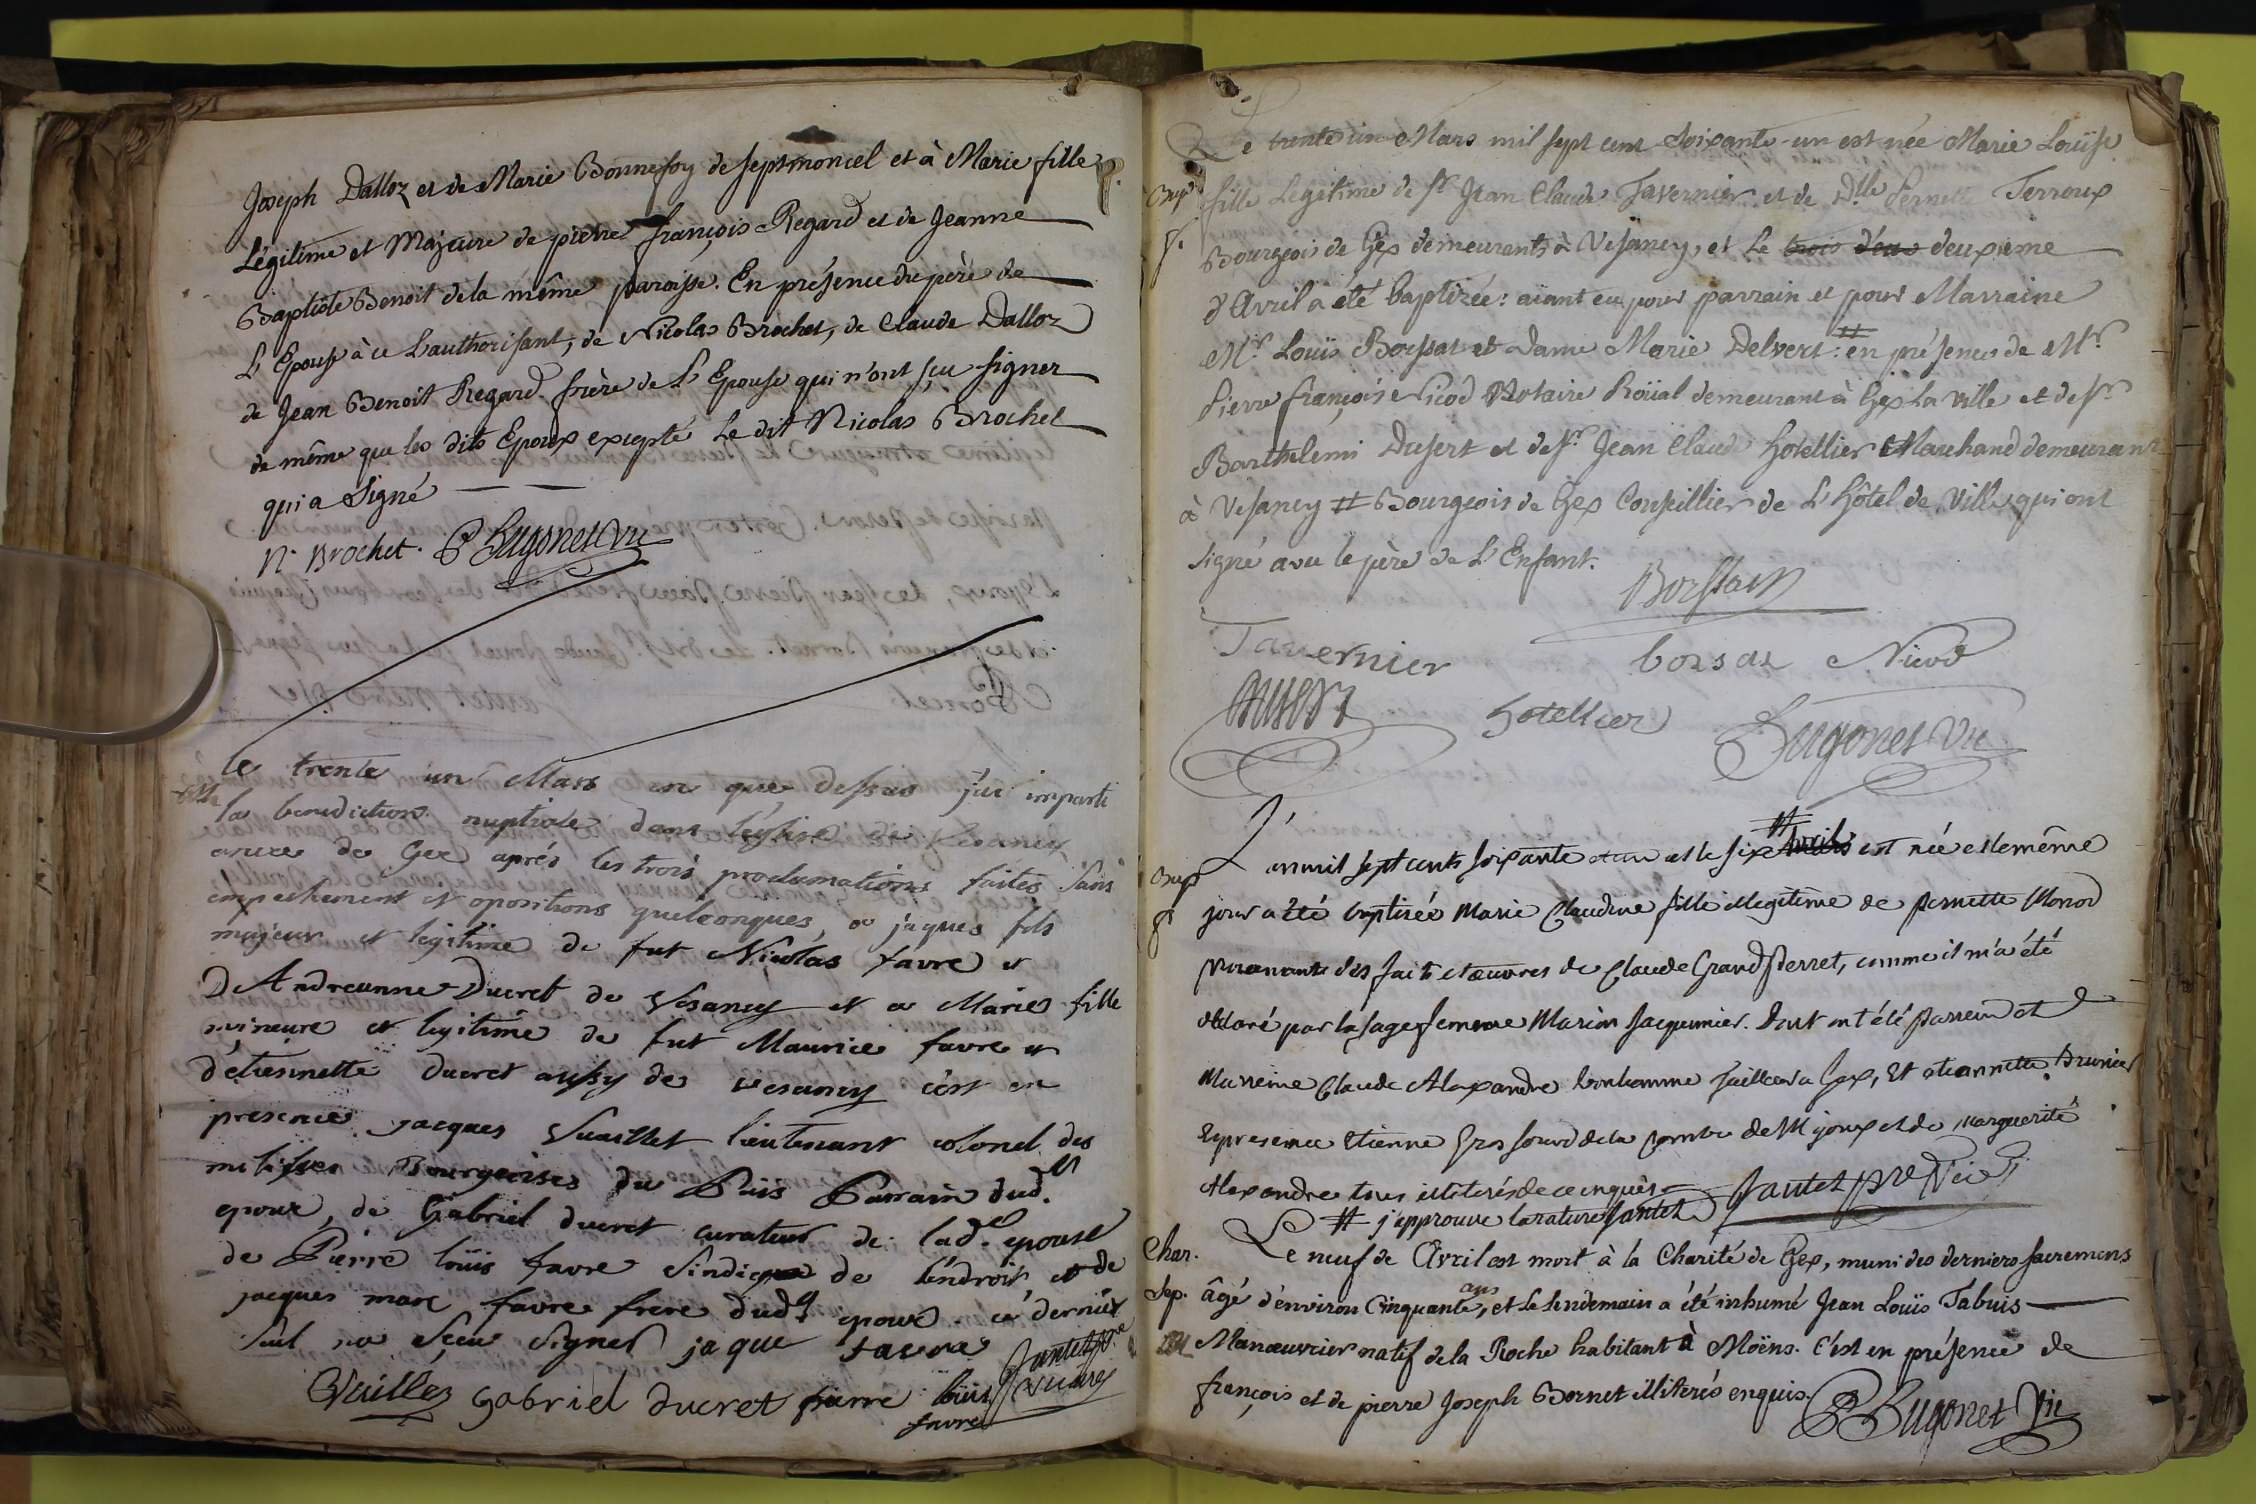 Joseph Dalloz et de Marie Bonnefoy de septmoncel et à Marie fille
Légitime et Majeure de pierre françois Regard et de Jeanne
Baptiste Benoit de la même paroisse. En présence du père de
L'Epouse à ce L'authorisant, de Nicolas Brochet, de Claude Dalloz
de Jean Benoit Regard frère de L'Epouse qui n'ont sçu signer
de même que les dits Epoux excepté Le dit Nicolas Brochet
qui a Signé
N. Brochet. P Bugonet Vic
le trente un Mars an que dessus j'ai imparti
la benediction nuptiale dans l'église de Vesancy
annexe de Gex aprés les trois proclamations faites sans
empechement et opositions quelconques, a jaques fils
majeur et legitime de fut Nicolas favre et
D'Andreanne Ducret de Vesancy et a Marie fille
mineure et legitime de fut Maurice favre et
d'etiennette ducret aussy de vesancy c'est en
presence jacques Vuaillet lieutenant colonel des
milisses Bourgeoises du Païs Parrain dud.t
epoux, de Gabriel ducret curateur de lad.e epouse
de Pierre loüis favre sindique de l'endroit et de
jacques marc favre frere dud.t epoux ce dernier
seul na sçeu signer jaque favre
Vuaillez gabriel ducret pierre loüis
favre
Jantet p.re
vicaire
Le trente un Mars mil sept cent Soixante-un est née Marie Louïse
Bap.
fille Légitime de S.r Jean Claude Tavernier et de D.lle Pernette Terroux
f.
Bourgeois de Gex demeurants à Vesancy, et Le trois d'eux deuxième
d'Avril a eté baptizée: aïant eu pour parrain et pour Marraine
M.r Louïs Borssat et Dame Marie Delvert: # en présence de M.r
Pierre françois Nicod Notaire Roïal demeurant à Gex La ville et de S.r
Barthelemi Dusert et de S.r Jean Claude hotellier Marchand demeurant
à Vesancy # Bourgeois de Gex Conseillier de L'hôtel de Ville qui ont
signé avec le père de L'Enfant.
Borssat
Tavernier borsat Nicod
Dusert hotellier Bugonet Vic
#
L'an mil sept cents soixante et un et le six avril est née et le même
Bap
jour a été baptisée Marie Claudine fille illegitime de pernette Monod
f.
provenante des faits et œuvres de Claude Grand Perret, comme il m'a été
déclaré par la sage femme Marion Jacquinier. Dont ont été parrein et
Marreine Claude Alexandre bonhomme tailleur a Gex, Et Jeannette Brunier
En presence Etienne Gros sourd de la Combe de Mijoux et de Marguerité
Alexandre tous illiterés de ce enquis Jantet p.re Vic
# j'approuve la rature Jantet
Char.
Le neuf de Avril est mort à la Charité de Gex, muni des derniers sacremens
Sep.
âgé d'environ Cinquante ans, et Le Lendemain a été inhumé Jean Louïs Tabuis
Manœuvrier natif de la Roche habitant à Moëns. C'est en présence de
françois et de pierre Joseph Bornet illiterés enquis. P Bugonet Vic